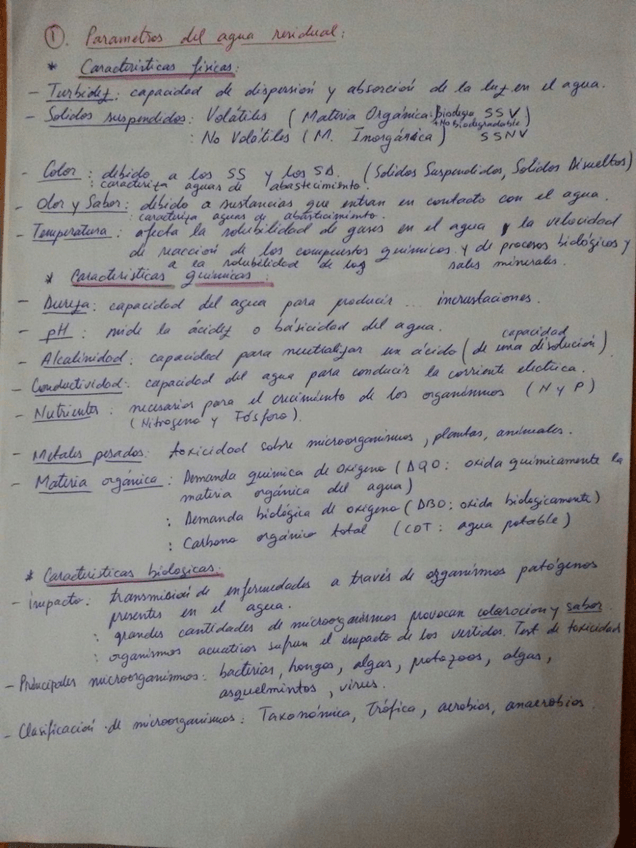 ①. Parametros del agua residual:
* Caracteristicas físicas:
- Turbidez: capacidad de dispersión y absorción de la luz en el agua.
- Solidos suspendidos: Volátiles (Materia Orgánica: Biodegra SSV
+ No Biodegradable)
: No Volátiles (M. Inorgánica) SSNV
- Color: debido a los SS y los SD. (Solidos Suspendidos, Solidos Disueltos)
: caracteriza aguas de abastecimiento.
- Olor y Sabor: debido a sustancias que entran en contacto con el agua.
: caracteriza aguas de abastecimiento.
- Temperatura: afecta la solubilidad de gases en el agua y la velocidad
de reacción de los compuestos químicos y de procesos biológicos y
a la solubilidad de los sales minerales.
* Caracteristicas químicas:
- Dureza: capacidad del agua para producir... incrustaciones.
- pH: mide la ácidez o básicidad del agua.
capacidad
- Alcalinidad: capacidad para neutralizar un ácido (de una disolución)
- Conductividad: capacidad del agua para conducir la corriente electrica.
- Nutrientes: necesarios para el crecimiento de los organismos (N y P)
(Nitrogeno y Fósforo).
- Metales pesados: toxicidad sobre microorganismos, plantas, animales.
- Materia orgánica: Demanda química de oxigeno (DQO: oxida quimicamente la
materia orgánica del agua)
: Demanda biológica de oxigeno (DBO: oxida biologicamente)
: Carbono orgánico total (COT: agua potable)
* Caracteristicas biologicas:
- impacto: transmisión de enfermedades a través de organismos patógenos
presentes en el agua.
: grandes cantidades de microorganismos provocan coloracion y sabor
: organismos acuaticos sufren el impacto de los vertidos. Test de toxicidad
- Principales microorganismos: bacterias, hongos, algas, protozoos, algas,
asquelmintos, virus.
- Clasificación de microorganismos: Taxonómica, Trófica, aerobios, anaerobios.